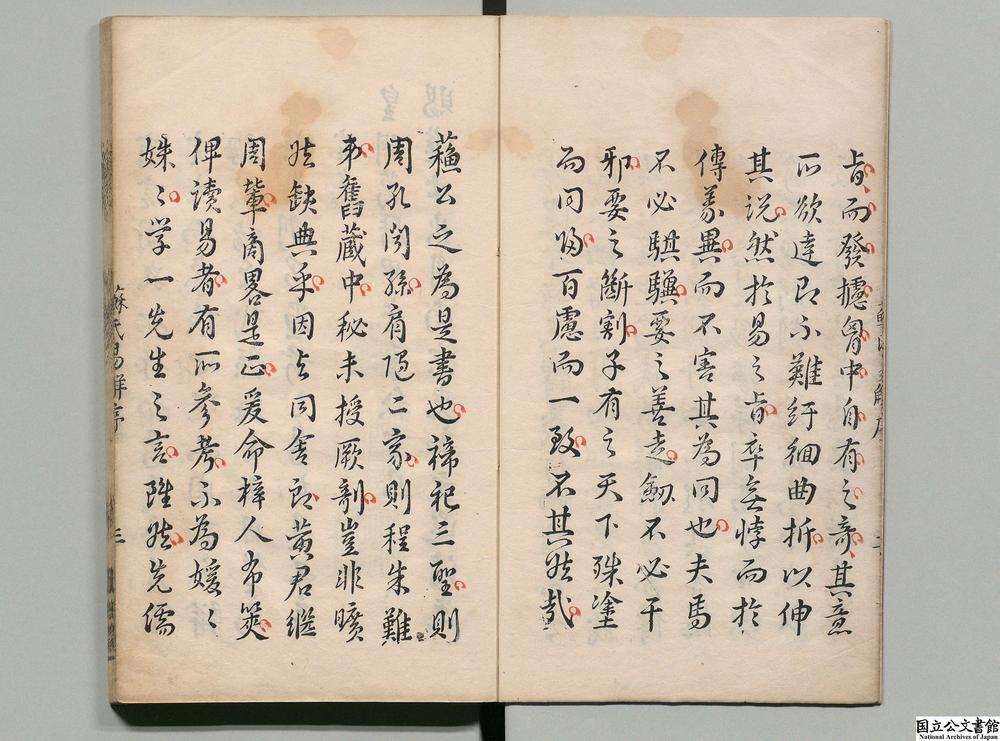 旨而發攄胷中自有之奇其意
所欲達即不難紆細曲折以伸
其說然於易之旨卒無悖而於
傳義異而不害其為同也夫馬
不必騏驥要之善走劒不必干
邪要之斷割子有之天下殊塗
而同歸百慮而一致不其然哉
蘓公之為是書也禘祀三聖則
周孔閔孫肩隨二家則程朱難
弟舊藏中秘未授厥剞豈非曠
世缺典乎因與同舍郎黃君繼
周輩商畧是正爰命梓人布筴
俾讀易者有所參考不為媛〻
姝〻學一先生之言雖然先儒
蘇氏易解序
三
国立公文書館
National Archives of Japan